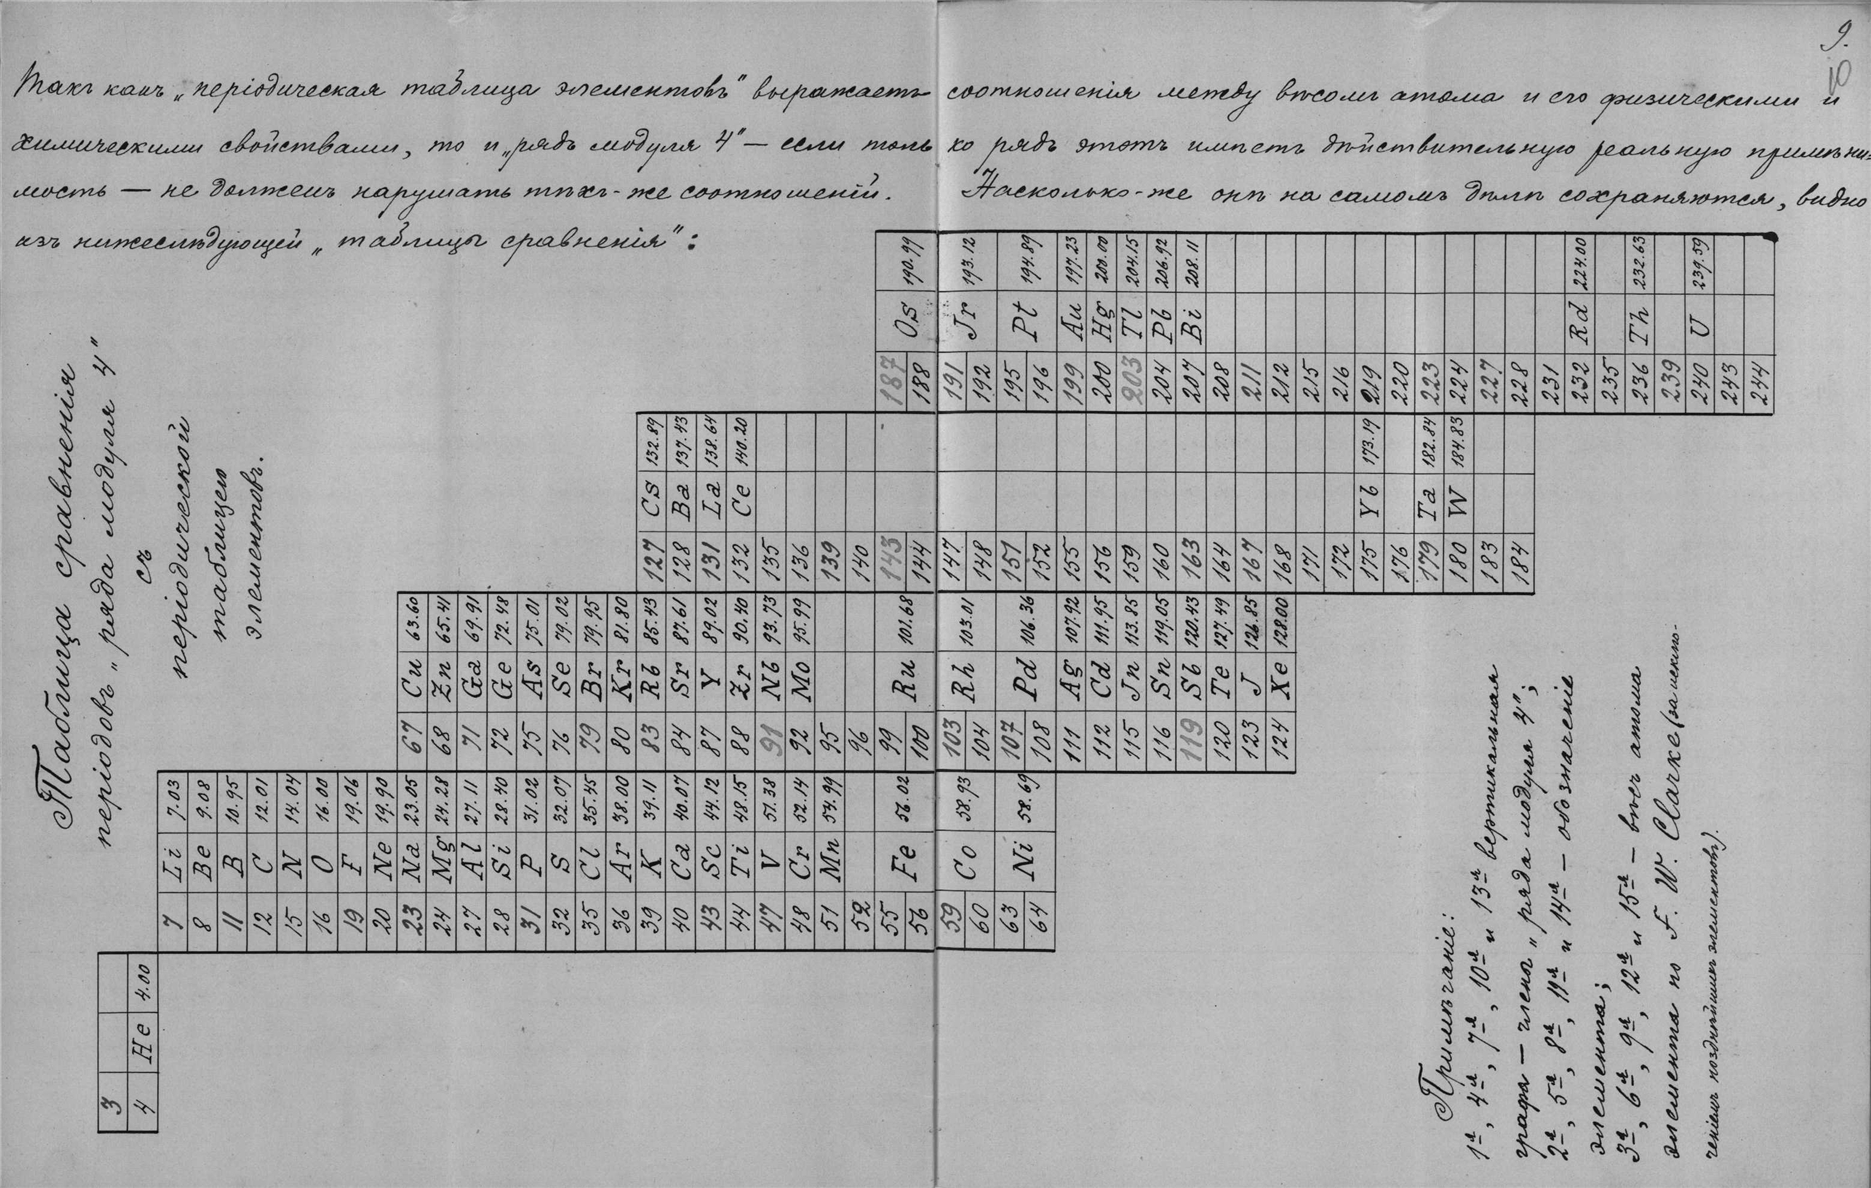 9.
10
Такъ какъ „періодическая таблица элементовъ" выражаетъ соотношенія между вѣсомъ атома и его физическими и
химическими свойствами, то и „рядъ модуля 4" — если толь ко рядъ этотъ имѣетъ дѣйствительную реальную примѣни=
мость — не долженъ нарушать тѣхъ-же соотношеній. Насколько-же онѣ на самомъ дѣлѣ сохраняются, видно
изъ нижеслѣдующей „таблицы сравненія":
Таблица сравненія
періодовъ „ряда модуля 4"
съ
періодической
таблицею
элементовъ.
3
4 He 4.00
7 Li 7.03
8 Be 9.08
11 B 10.95
12 C 12.01
15 N 14.04
16 O 16.00
19 F 19.06
20 Ne 19.90
23 Na 23.05 67 Cu 63.60
24 Mg 24.28 68 Zn 65.41
27 Al 27.11 71 Ga 69.91
28 Si 28.40 72 Ge 72.48
31 P 31.02 75 As 75.01
32 S 32.07 76 Se 79.02
35 Cl 35.45 79 Br 79.95
36 Ar 38.00 80 Kr 81.80
39 K 39.11 83 Rb 85.43 127 Cs 132.89
40 Ca 40.07 84 Sr 87.61 128 Ba 137.43
43 Sc 44.12 87 Y 89.02 131 La 138.64
44 Ti 48.15 88 Zr 90.40 132 Ce 140.20
47 V 51.38 91 Nb 93.73 135
48 Cr 52.14 92 Mo 95.99 136
51 Mn 54.99 95 139
52 96 140
55 Fe 56.02 99 Ru 101.68 143 187 Os 190.99
56 100 144 188
59 Co 58.93 103 Rh 103.01 147 191 Jr 193.12
60 104 148 192
63 Ni 58.69 107 Pd 106.36 151 195 Pt 194.89
64 108 152 196
111 Ag 107.92 155 199 Au 197.23
112 Cd 111.95 156 200 Hg 200.00
115 Jn 113.85 159 203 Tl 204.15
116 Sn 119.05 160 204 Pb 206.92
119 Sb 120.43 163 207 Bi 208.11
120 Te 127.49 164 208
123 J 126.85 167 211
124 Xe 128.00 168 212
171 215
172 216
175 Yb 173.19 219
176 220
179 Ta 182.84 223
180 W 184.83 224
183 227
184 228
231
232 Rd 224.00
235
236 Th 232.63
239
240 U 239.59
243
244
Примѣчаніе:
1я, 4я, 7я, 10я и 13я вертикальная
графа — члены „ряда модуля 4";
2я, 5я, 8я, 11я и 14я — обозначеніе
элемента;
3я, 6я, 9я, 12я и 15я — вѣсъ атома
элемента по F. W. Clarke (за исклю-
ченіемъ позднѣйшихъ элементовъ).